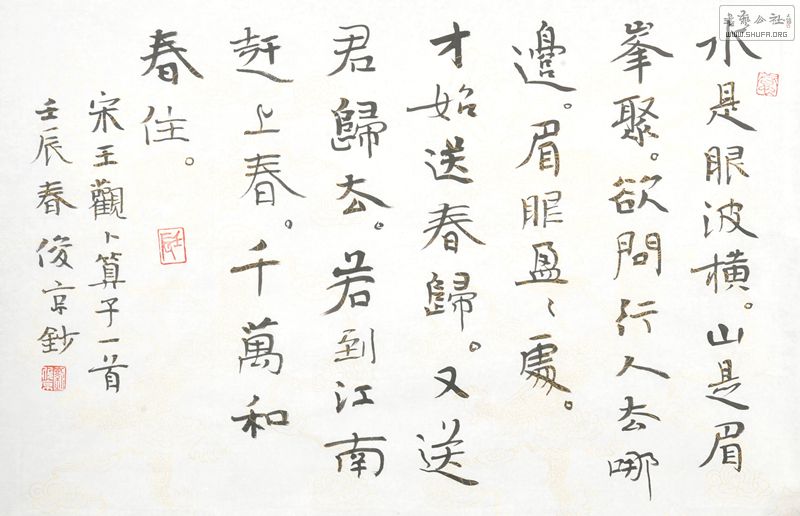 水是眼波橫。山是眉
峯聚。欲問行人去哪
邊。眉眼盈〻處。
才始送春歸。又送
君歸去。若到江南
趕上春。千萬和
春住。
宋王觀卜算子一首
壬辰春俊京鈔
書法公社
WWW.SHUFA.ORG